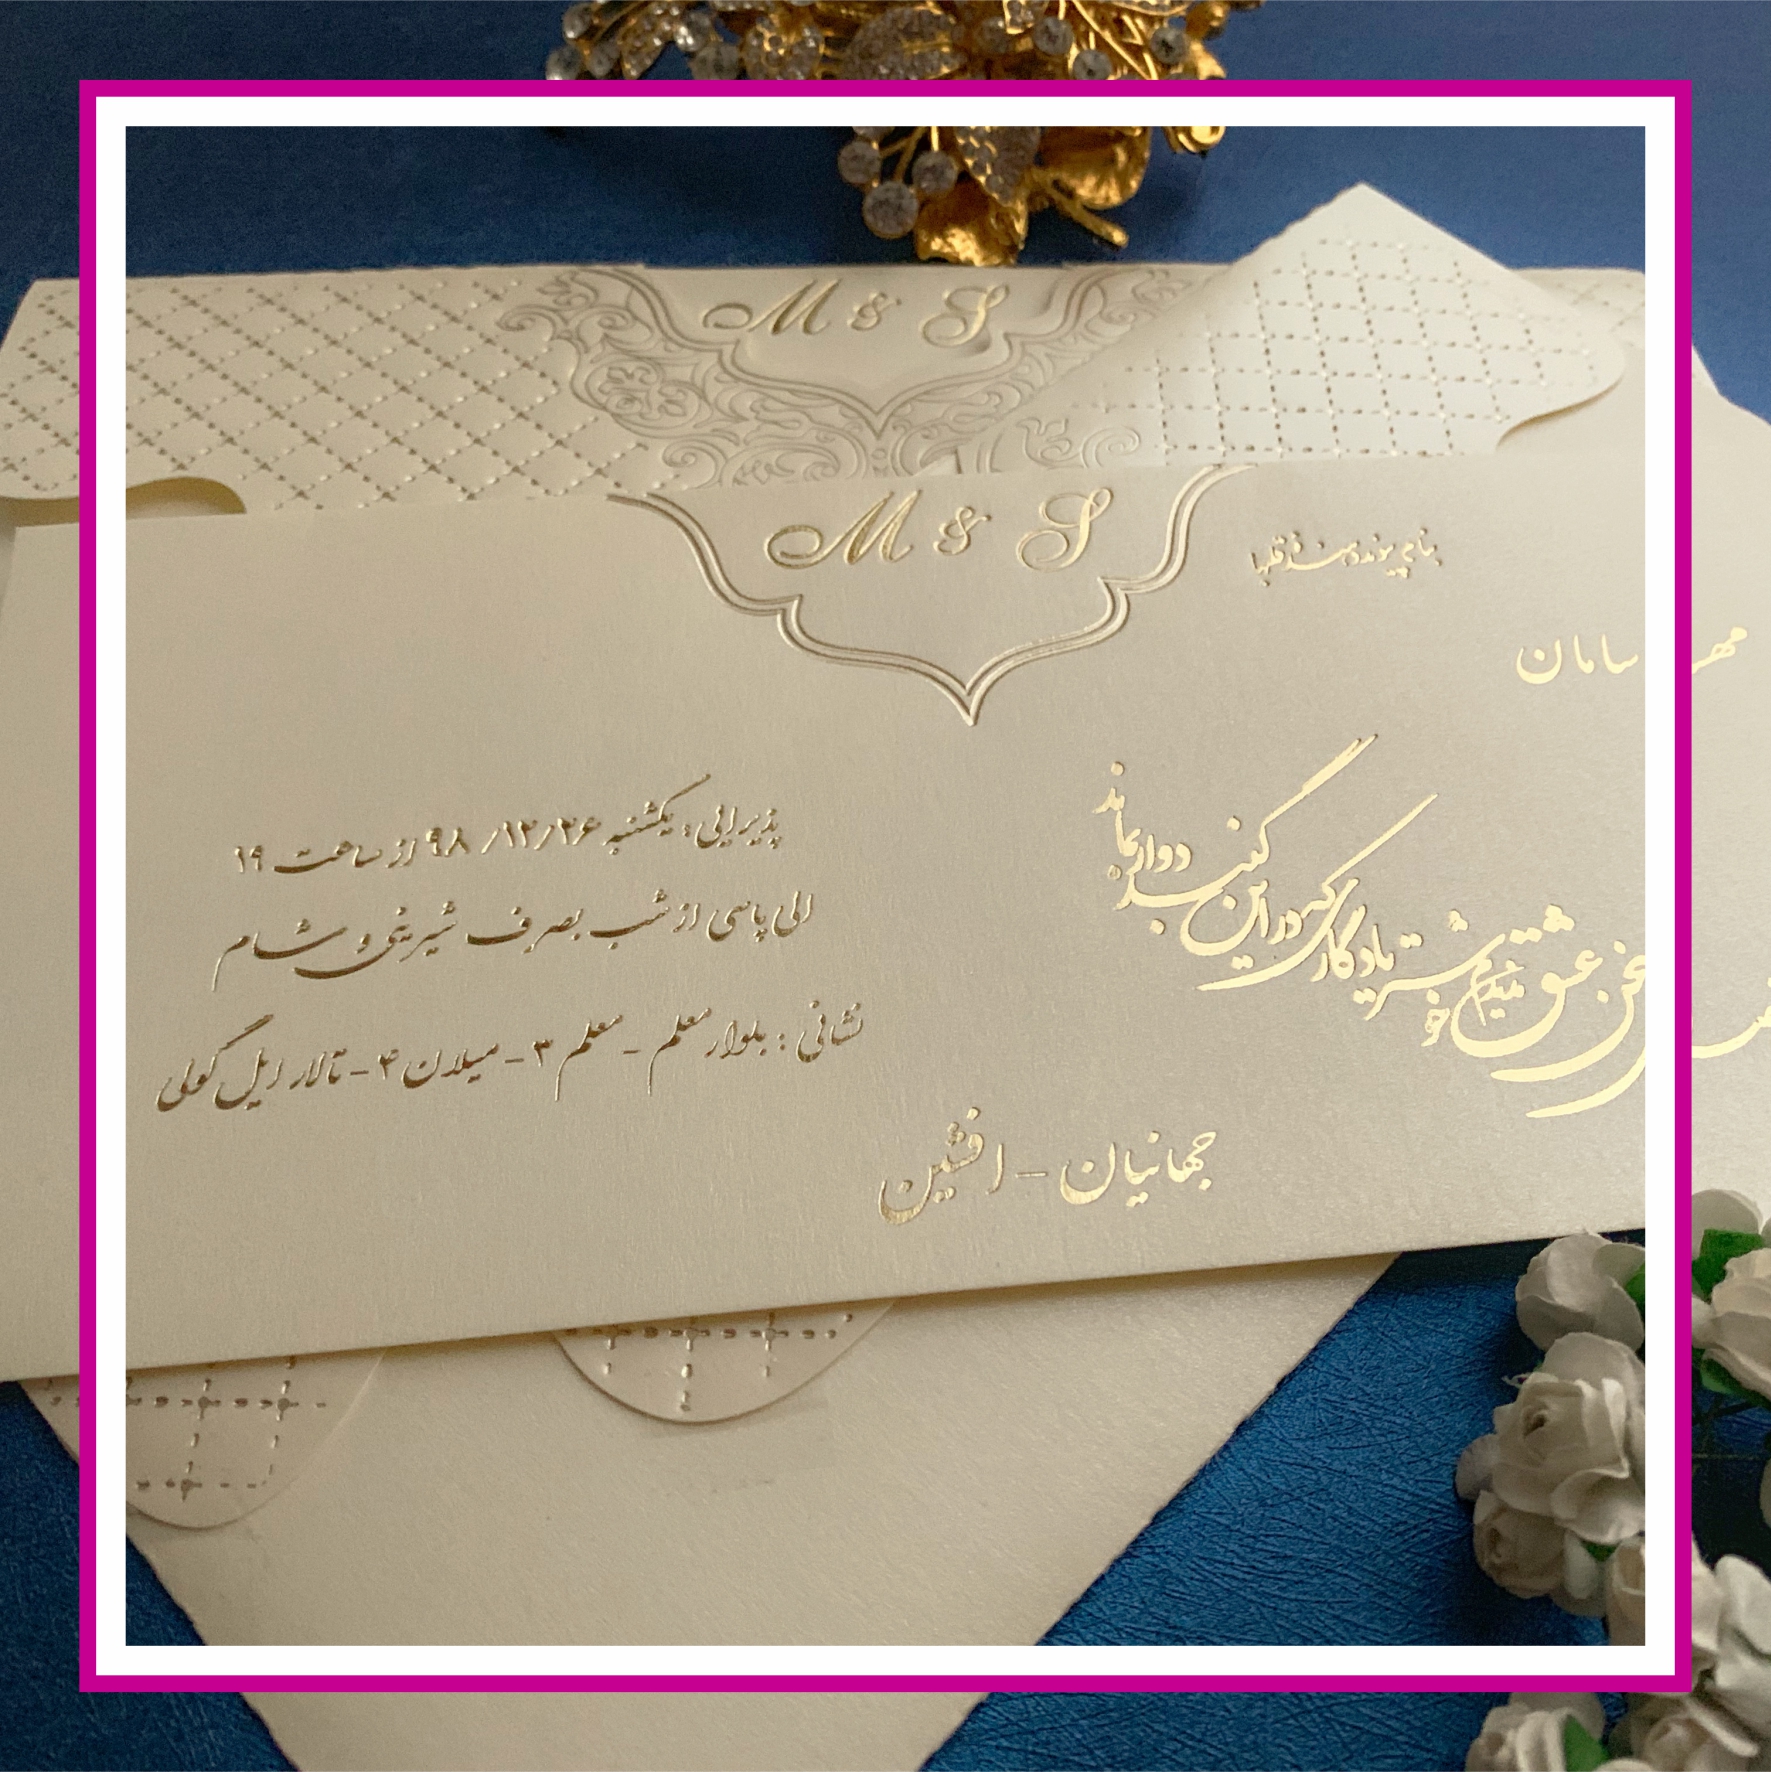 M & S
M & S
بنام پیوند دهنده قلبها
سامان
سخن عشق ندیدم خوشتر یادگاری که در این گنبد دوار بماند
پذیرایی: یکشنبه ۹۸/۱۲/۲۶ از ساعت ۱۹
الی پاسی از شب بصرف شیرینی و شام
نشانی: بلوار معلم - معلم ۳ - میلان ۴ - تالار ایل گولی
جهانیان - افشین